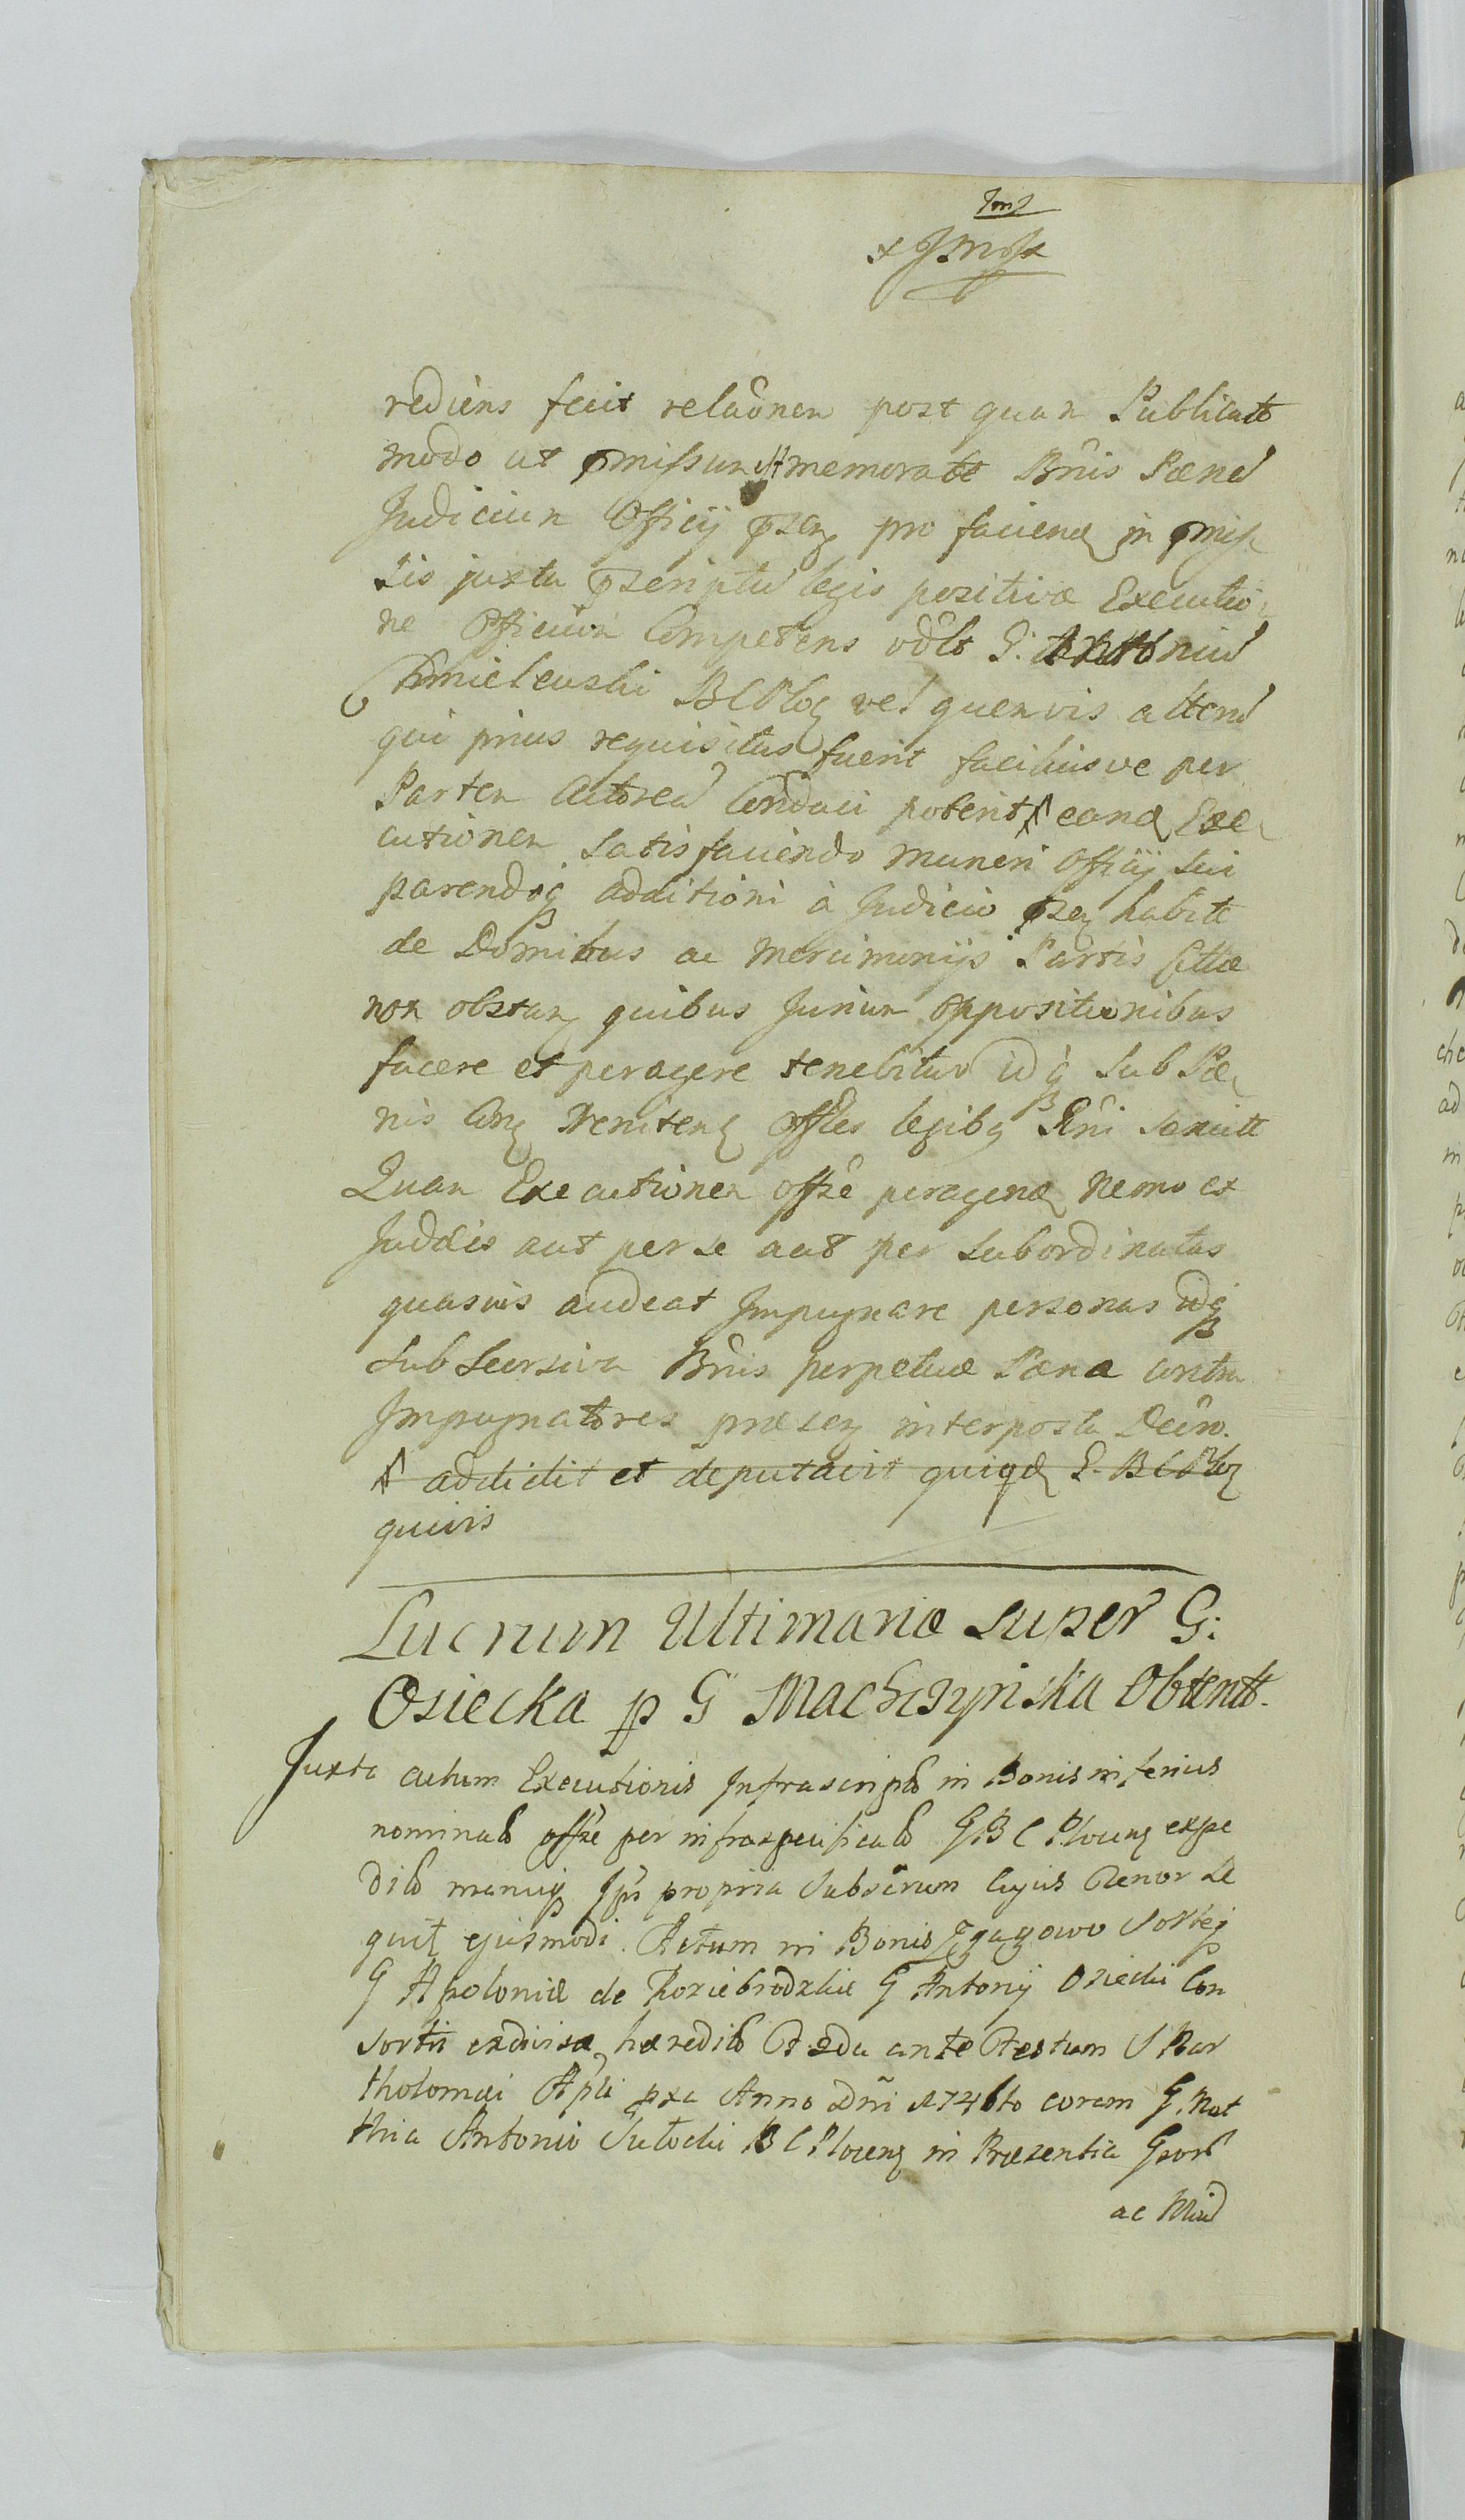 rediens fecit relaõnem post quam Publicatt
modo ut pmissum memoratt Bnis Pænæ
Judicium Officij psen pro faciend in pmis
sis juxta pscriptu legis positivæ Executio
ne Officium Competens vdlt G. Antoniu
Chmielewski BCPloc vel quemvis alteru
qui prius requisitus fuerit faciliusve per
Partem Actorea Conduci poterit eand Exe
cutionem satisfaciendo muneri Officij sui
parendoq additioni à Judicio psen habitt
de Domibus ac Mercimonijs Partis Cittæ
non obstan quibus Jurium oppositionibus
facere et peragere tenebitur idq sub Pæ
nis Con Reniten Offles legibq Rni sancitt
Quam Executionem offse peragend nemo ex
Juddis aut per se aut per subordinatas
quasvis audeat Impugnare personas idq
sub secursiva Bnis perpetuæ Pæna contra
Impugnatores præsen interposta Decro.
addidit et deputavit quiqd G. BCPloc
quivis
Lucrum Ultimariæ super G:
Osiecka p G Machczynska Obtentt.
Juxta actum Executionis Infrascript in Bonis inferius
nominatt offse per infraspecificatt GBC Plocen expe
ditt manuq Ips propria Subscrum Cujus Tenor se
quit ejusmodi. Actum in Bonis Zgagowo Sortej
G Apoloniæ de Koziebrodzkie G Antonij Osiecki Con
sortis exdivisæ hæreditt Feda ante Festum S Bar
tholomæi Apli pxa Anno Dni 1746to coram G. Mat
thia Antonio Sutocki BC Plocen in Præsentia Gsor
ac Mind